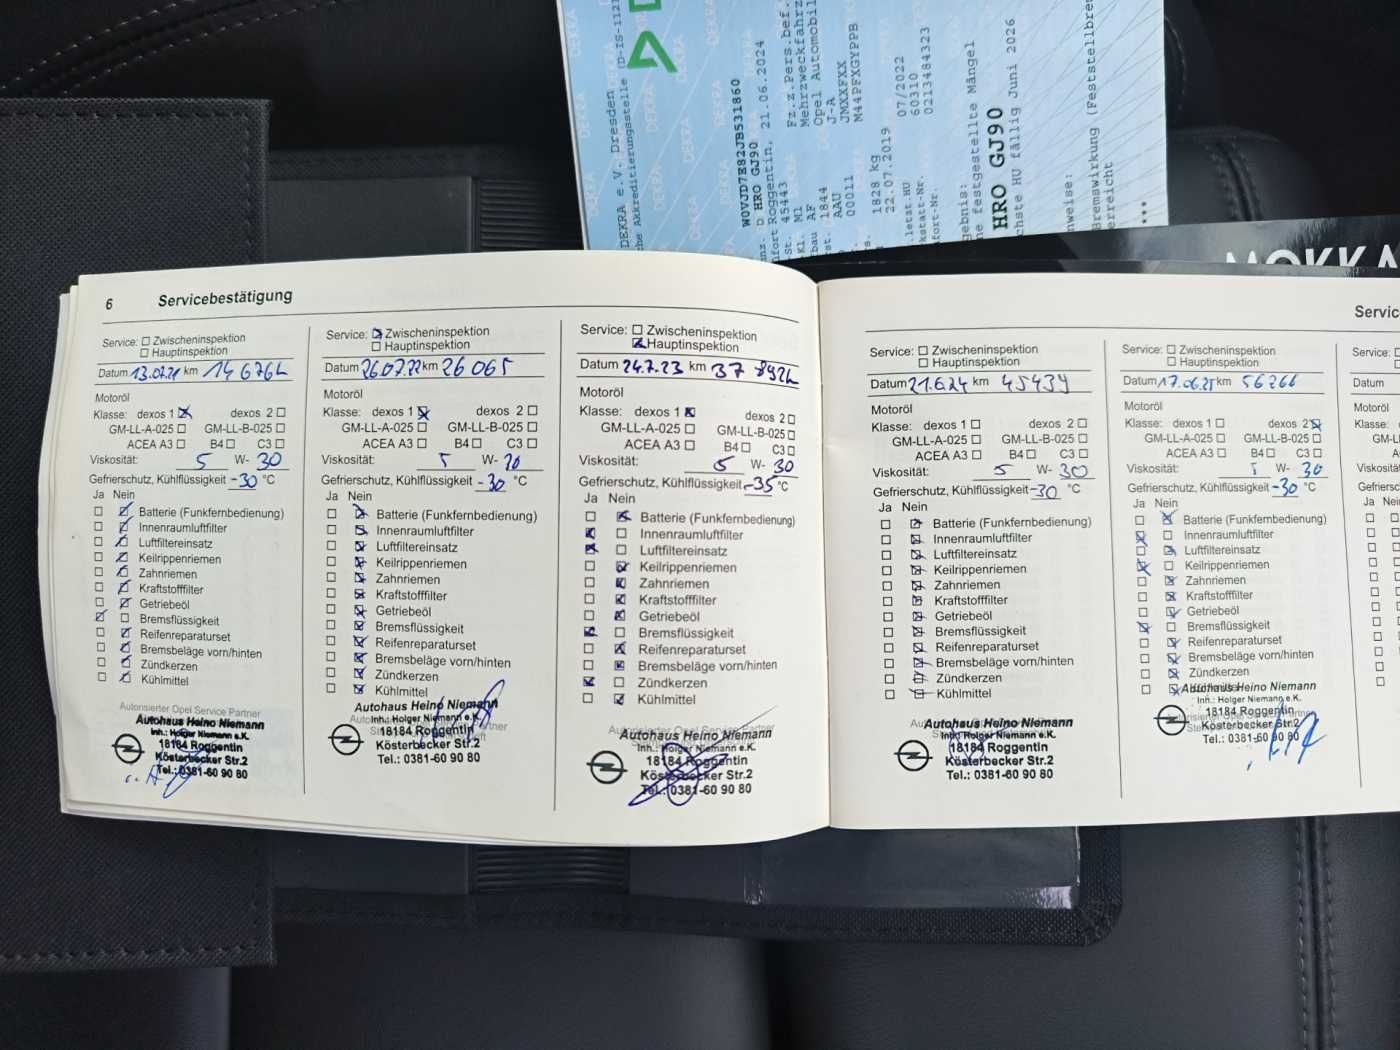 DEKRA e.V. Dresden
che Akkreditierungsstelle (D-IS-1121
W0VJD7E82JB531860
nz. D HRO GJ90
fort Roggentin, 21.06.2024
45443 Fz.z.Pers.bef.
Kl. M1 Mehrzweckfahrz
bau AF Opel Automobil
1844 J-A
AAU JMXXFXX
00011 M44PFXGYPPB
1828 kg
22.07.2019
letzt HU 07/2022
kstatt-Nr. 60310
fort-Nr. 0213484323
gebnis:
ne festgestellte Mängel
HRO GJ90
chste HU fällig Juni 2026
nweise:
Bremswirkung (Feststellbrem
erreicht
***
MOKKA
6 Servicebestätigung
Service: Zwischeninspektion
Hauptinspektion
Datum 13.07.21 km 14 676
Motoröl
Klasse: dexos 1 dexos 2
GM-LL-A-025 GM-LL-B-025
ACEA A3 B4 C3
Viskosität: 5 W- 30
Gefrierschutz, Kühlflüssigkeit -30 °C
Ja Nein
Batterie (Funkfernbedienung)
Innenraumluftfilter
Luftfiltereinsatz
Keilrippenriemen
Zahnriemen
Kraftstofffilter
Getriebeöl
Bremsflüssigkeit
Reifenreparaturset
Bremsbeläge vorn/hinten
Zündkerzen
Kühlmittel
Autorisierter Opel Service Partner
Autohaus Heino Niemann
Inh.: Holger Niemann e.K.
18184 Roggentin
Kösterbecker Str.2
Tel.: 0381-60 90 80
Service: Zwischeninspektion
Hauptinspektion
Datum 26.07.22 km 26 065
Motoröl
Klasse: dexos 1 dexos 2
GM-LL-A-025 GM-LL-B-025
ACEA A3 B4 C3
Viskosität: 5 W- 30
Gefrierschutz, Kühlflüssigkeit -30 °C
Ja Nein
Batterie (Funkfernbedienung)
Innenraumluftfilter
Luftfiltereinsatz
Keilrippenriemen
Zahnriemen
Kraftstofffilter
Getriebeöl
Bremsflüssigkeit
Reifenreparaturset
Bremsbeläge vorn/hinten
Zündkerzen
Kühlmittel
Autohaus Heino Niemann
Inh.: Holger Niemann e.K.
18184 Roggentin
Kösterbecker Str.2
Tel.: 0381-60 90 80
Service: Zwischeninspektion
Hauptinspektion
Datum 24.7.23 km 37 892
Motoröl
Klasse: dexos 1 dexos 2
GM-LL-A-025 GM-LL-B-025
ACEA A3 B4 C3
Viskosität: 5 W- 30
Gefrierschutz, Kühlflüssigkeit -35 °C
Ja Nein
Batterie (Funkfernbedienung)
Innenraumluftfilter
Luftfiltereinsatz
Keilrippenriemen
Zahnriemen
Kraftstofffilter
Getriebeöl
Bremsflüssigkeit
Reifenreparaturset
Bremsbeläge vorn/hinten
Zündkerzen
Kühlmittel
Autorisierter Opel Service Partner
Autohaus Heino Niemann
Inh.: Holger Niemann e.K.
18184 Roggentin
Kösterbecker Str.2
Tel.: 0381-60 90 80
Servic
Service: Zwischeninspektion
Hauptinspektion
Datum 21.6.24 km 45439
Motoröl
Klasse: dexos 1 dexos 2
GM-LL-A-025 GM-LL-B-025
ACEA A3 B4 C3
Viskosität: 5 W- 30
Gefrierschutz, Kühlflüssigkeit -30 °C
Ja Nein
Batterie (Funkfernbedienung)
Innenraumluftfilter
Luftfiltereinsatz
Keilrippenriemen
Zahnriemen
Kraftstofffilter
Getriebeöl
Bremsflüssigkeit
Reifenreparaturset
Bremsbeläge vorn/hinten
Zündkerzen
Kühlmittel
Autohaus Heino Niemann
Inh.: Holger Niemann e.K.
18184 Roggentin
Kösterbecker Str.2
Tel.: 0381-60 90 80
Service: Zwischeninspektion
Hauptinspektion
Datum 17.06.25 km 56266
Motoröl
Klasse: dexos 1 dexos 2
GM-LL-A-025 GM-LL-B-025
ACEA A3 B4 C3
Viskosität: 5 W- 30
Gefrierschutz, Kühlflüssigkeit -30 °C
Ja Nein
Batterie (Funkfernbedienung)
Innenraumluftfilter
Luftfiltereinsatz
Keilrippenriemen
Zahnriemen
Kraftstofffilter
Getriebeöl
Bremsflüssigkeit
Reifenreparaturset
Bremsbeläge vorn/hinten
Zündkerzen
Autohaus Heino Niemann
Inh.: Holger Niemann e.K.
18184 Roggentin
Kösterbecker Str.2
Tel.: 0381-60 90 80
Service:
Datum
Motoröl
Klasse:
Viskosität
Gefriersc
Ja Nein